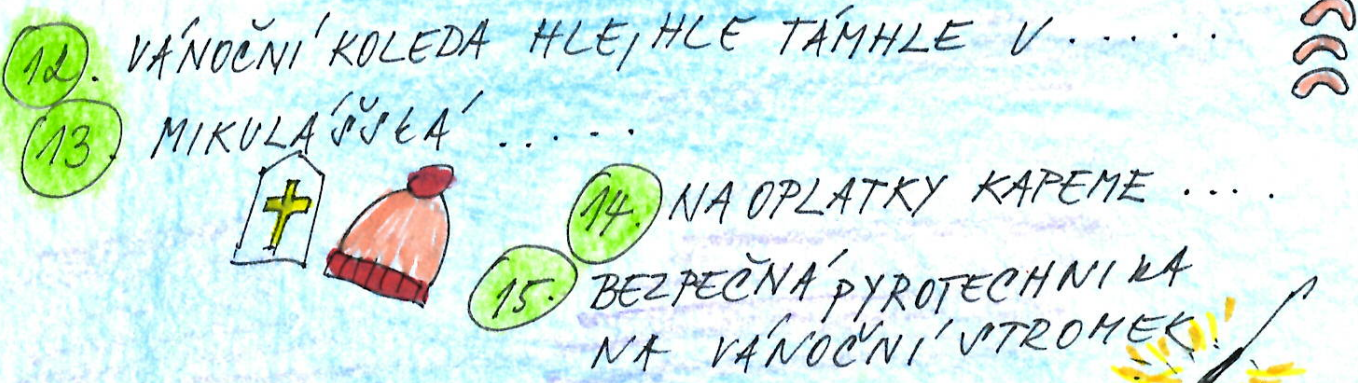 12. VÁNOČNÍ KOLEDA HLE, HLE TÁMHLE V .....
13. MIKULÁŠSKÁ .....
14. NA OPLATKY KAPEME ....
15. BEZPEČNÁ PYROTECHNIKA
NA VÁNOČNÍ STROMEK